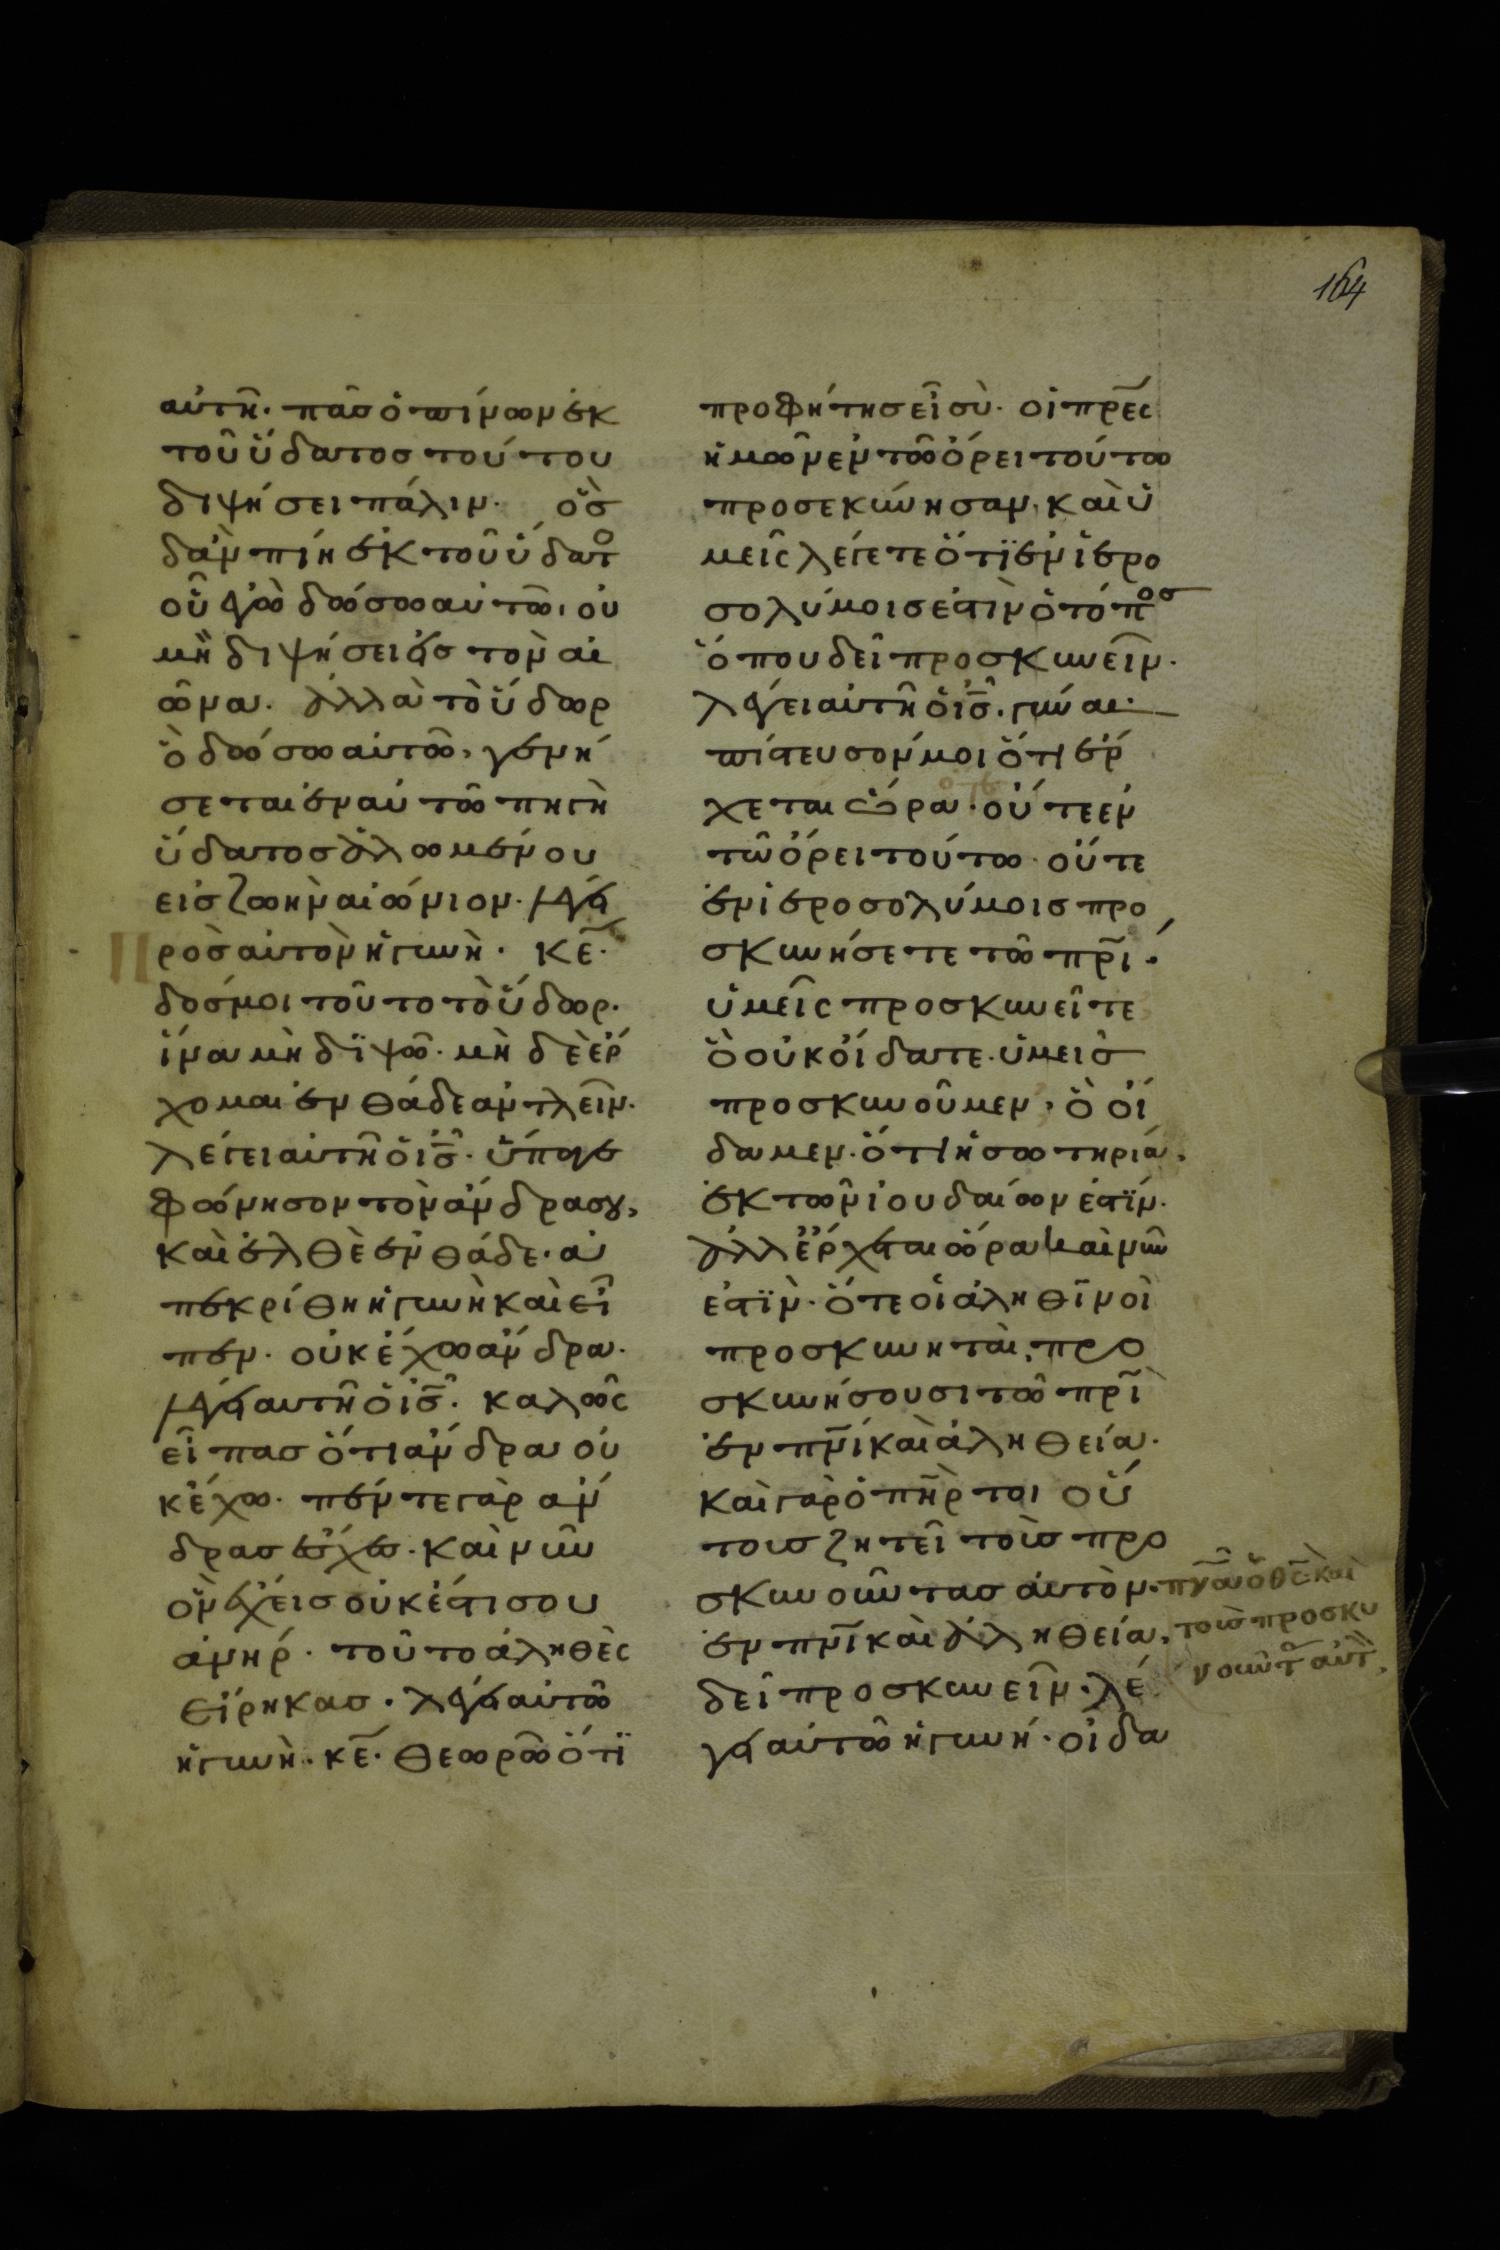 164
αὐτῆ. πᾶσ ὁ πίνων ἐκ
τοῦ ὕδατοσ τούτου
διψήσει πάλιν. ὃσ
δ' ἂν πίη ἐκ τοῦ ὕδατο
οὗ ἐγὼ δώσω αὐτῶ, οὐ
μὴ διψήσει εἰσ τὸν αἰ
ῶνα. ἀλλὰ τὸ ὕδωρ
ὃ δώσω αὐτῶ, γενή
σεται ἐν αὐτῶ πηγὴ
ὕδατοσ ἁλλωμένου
εἰσ ζωὴν αἰώνιον. λέγει
Προσ αὐτὸν ἡ γυνὴ. κε̄.
δόσ μοι τοῦτο τὸ ὕδωρ.
ἵνα μὴ διψῶ. μὴ δὲ ἔρ
χομαι ἐνθάδε ἀντλεῖν.
λέγει αὐτῆ ὁ ισ̄. ὕπαγε
φώνησον τὸν ἄνδρα σου,
καὶ ἐλθὲ ἐνθάδε. ἀ
πεκρίθη ἡ γυνὴ καὶ εἶ
πεν. οὐκ ἔχω ἄνδρα.
λέγει αυτῆ ὁ ισ̄. καλῶς
εἶπασ ὅτι ἄνδρα οὐ
κ ἔχω. πέντε γὰρ ἄν
δρασ ἔσχεσ. καὶ νῦν
ὃν ἔχεισ οὐκ ἔστι σου
ἀνήρ. τοῦτο ἀληθὲς
εἴρηκασ. λέγει αὐτῶ
ἡ γυνὴ. κε̄. θεωρῶ ὅτι
προφήτησ εἶ σὺ. οἱ πρ̄ες
ἡμῶν ἐν τῶ ὄρει τούτω
προσεκύνησαν. καὶ ὑ
μεῖς λέγετε ὅτι ἐν ἱερο
σολύμοισ ἐστὶν ὁ τόποσ
ὅπου δεῖ προσκυνεῖν.
λέγει αὐτῆ ὁ ισ̄. γύναι
πίστευσον μοι ὅτι ἔρ
χεται ὥρα. οὔτε ἐν
τῶ ὄρει τούτω οὔτε
ἐν ἱεροσολύμοισ προ
σκυνήσετε τῶ πρ̄ι.
ὑμεῖς προσκυνεῖτε
ὃ οὐκ οἴδατε. ὑμεισ
προσκυνοῦμεν, ὃ οἴ
δαμεν. ὅτι ἡ σωτηρία,
ἐκ τῶν ἰουδαίων ἐστϊν.
ἀλλ' ἔρχεται ὥρα καὶ νῦν
ἐστϊν. ὅτε οἱ ἀληθϊνοὶ
προσκυνηταὶ, προ
σκυνήσουσι τῶ πρ̄ι
ἐν πν̄ι καὶ ἀληθεία.
καὶ γὰρ ὁ πη̄ρ τοι οὕ
τουσ ζητεῖ τοὺσ προ
σκυνοῦντασ αὐτὸν. πν̄α ὁ θς̄ καὶ
ἐν πν̄ι καὶ ἀληθεία, τοὺσ προσκυ
δεῖ προσκυνεῖν. λέ νοῦντ αὐτ,
γει αὐτῶ ἡ γυνή. οἶδα